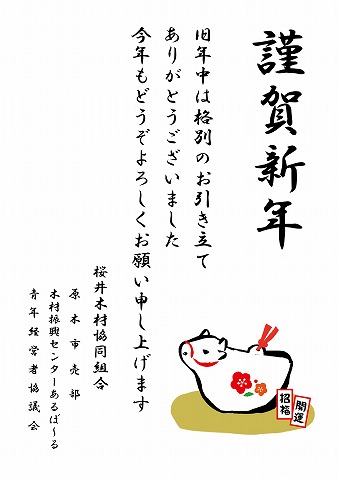 謹賀新年
旧年中は格別のお引き立て
ありがとうございました
今年もどうぞよろしくお願い申し上げます
桜井木材協同組合
原木市売部
木材振興センターあるぼ～る
青年経営者協議会
開運
招福